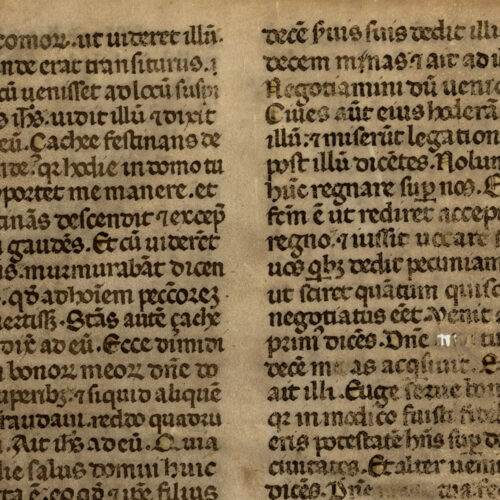 comorꝝ. ut uideret illũ.
nde erat transiturus. ⁊
cũ uenisset ad locũ suspi
s ih̃s. uidit illũ ⁊ dixit
eũ. Çachee festinans de
nde. qꝛ hodie in domo tu
portet me manere. et
tinãs descendit ⁊ excep̃
gaudẽs. Et cũ uiderẽt
s. murmurabãt dicen
. qđ ad hoĩem pecc̃orez
uertiss;. Stãs autẽ çache
dix̃ ad eũ. Ecce dimidi
bonorꝝ meorꝝ dñe do
uperib; ⁊ si quid aliquẽ
raudaui. reddo quadru
. Ait ih̃s ad eũ. Quia
die salus domui huic
ta ẽ. eo qđ ⁊ ipse filius
decẽ s̃uis suis dedit illi
decem mnas ⁊ ait ad il
Negotiamini dũ uenio
Ciues aũt eius hoderã
illũ. ⁊ miserũt legation
post illũ dicẽtes. Nolum
hũc regnare sup̱ nos. E
fcm̃ ẽ ut rediret accep
regno. ⁊ iussit uocare s
uos qb; dedit pecuniam
ut sciret quãtum quisq
negotiatus eẽt. Venit a
prim⁹ dicẽs. Dñe tu
decẽ m as acqsiuit. E
ait illi. Euge serue bon
qꝛ in modico fuisti fid
eris potestatẽ hñs sup̱ d
ciuitates. Et alter ueni
dicẽs. Dñe